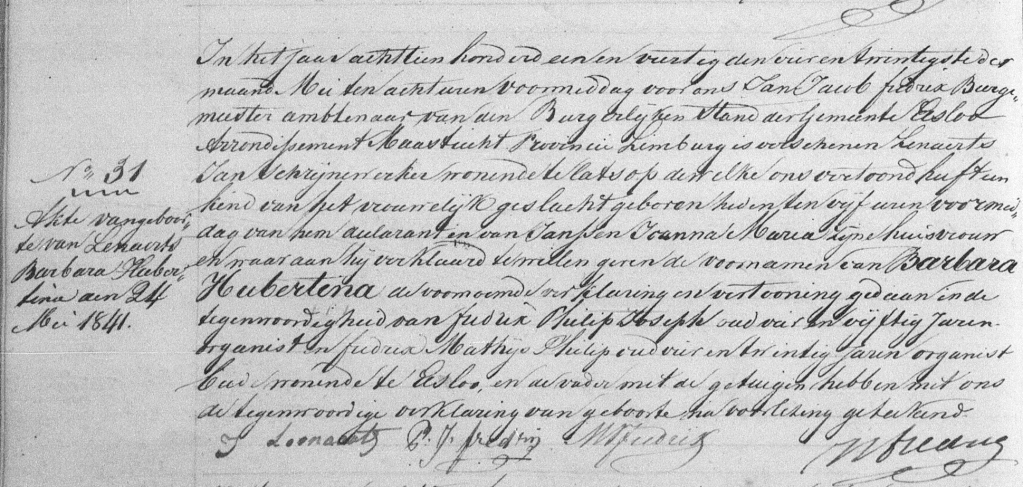 No 31
Akte van geboor-
te van Lenaerts
Barbara Huber-
tina den 24
Mei 1841.
In het jaar achttien honderd een en veertig den vier en twintigste der
maand Mei ten acht uren voormiddag voor ons Jan Jacob fredrix Burge-
meester ambtenaar van den Burgerlijken Stand der Gemeente Elsloo
Arrondissement Maastricht Provincie Limburg is verschenen Lenaerts
Jan Schrijnewerker wonende te Catsop dewelke ons vertoond heeft een
kend van het vrouwelijk geslacht geboren heden ten vijf uren voormid-
dag van hem declarant en van Janssen Joanna Maria zijne huisvrouw
en waar aan hij verklaard te willen geven de voornamen van Barbara
Hubertena de voornoemde verklaring en vertooning gedaan in de
tegenwoordigheid van fredrix Philip Joseph oud vier en vijftig Jaren
organist en fredrix Mathijs Philip oud vier en twintig Jaren organist
beide wonende te Elsloo, en de vader met de getuigen hebben met ons
de tegenwoordige verklaring van geboorte na voorlezing geteekend.
J Leonaerts P. J. fredrix M P fredrix